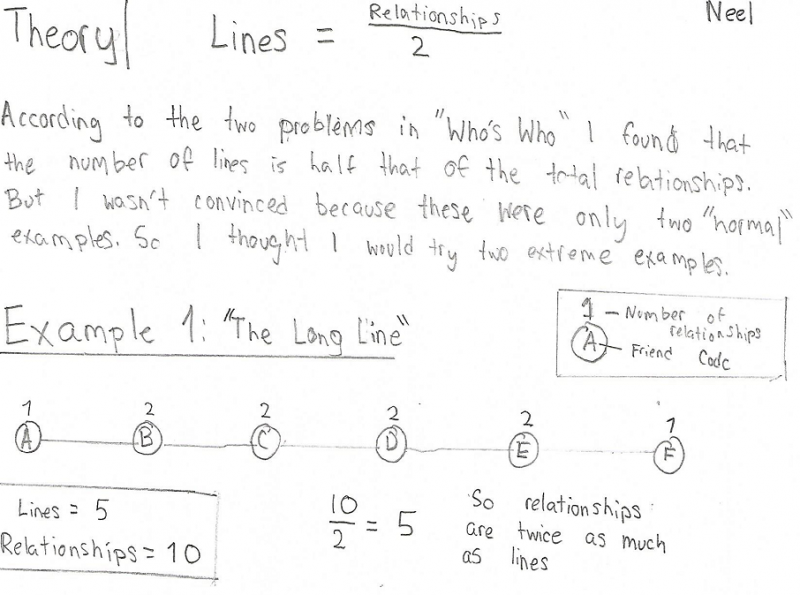 Theory| Lines = Relationships / 2 Neel
According to the two problems in "Who's Who" I found that
the number of lines is half that of the total relationships.
But I wasn't convinced because these were only two "normal"
examples. So I thought I would try two extreme examples.
Example 1: "The Long Line"
1 – Number of
relationships
A – Friend Code
1 2 2 2 2 1
A B C D E F
Lines = 5
Relationships = 10
10/2 = 5
So relationships
are twice as much
as lines